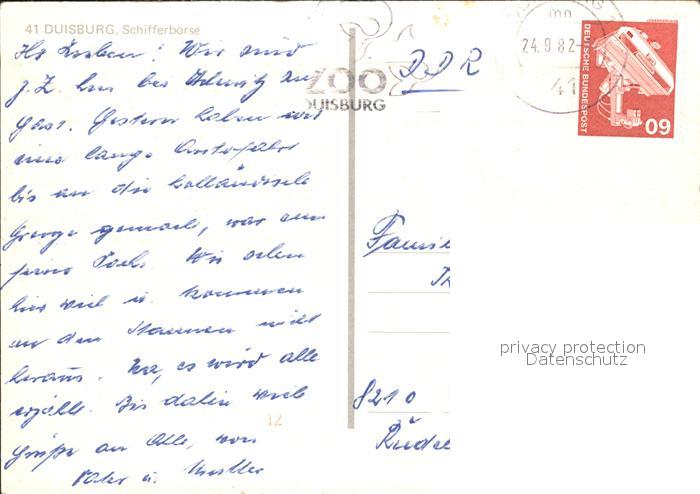 41 DUISBURG, Schifferbörse
Ihr Lieben! Wir sind
z.Z. hier bei Schmitz zu
Gast. Gestern haben wir
eine lange Autofahrt
bis an die holländische
Grenze gemacht, war eine
feine Sache. Wir sehen
hier viel u. kommen
aus dem Staunen nicht
heraus. Na, es wird alle
erzählt. Bis dahin viele
Grüße an Alle, von
Vater u. Mutter
12
ZOO
DUISBURG
DDR
24.9.82
41
DEUTSCHE BUNDESPOST
60
Famil
Th
privacy protection
Datenschutz
8210
Rudel